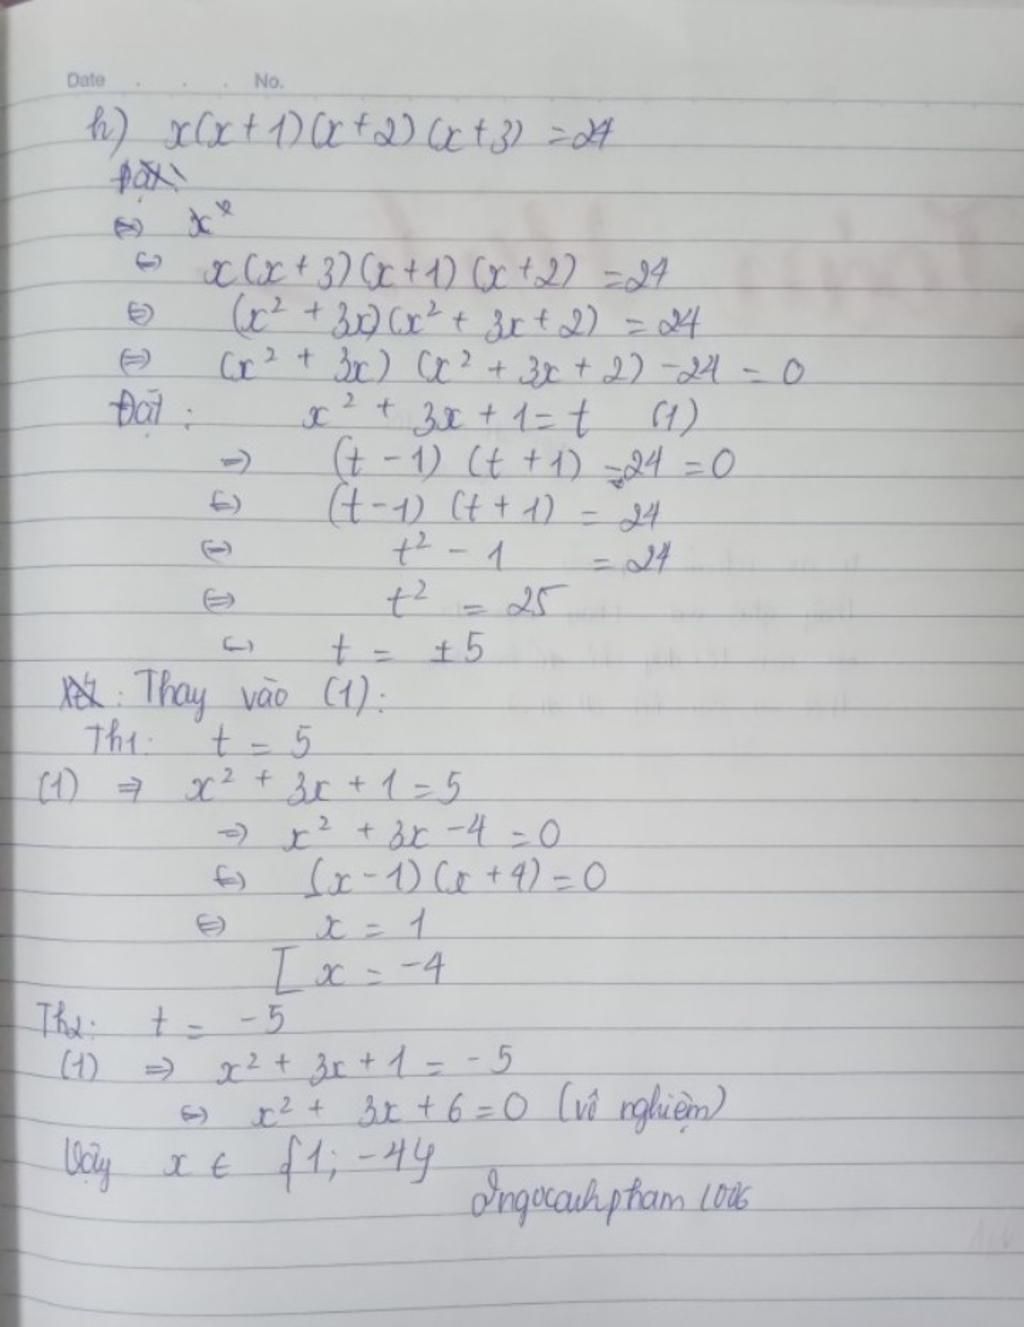 Date . . . No.
h) x(x+1)(x+2)(x+3) = 24
Đặt:
⇔ x²
⇔ x(x+3)(x+1)(x+2) = 24
⇔ (x² + 3x)(x² + 3x + 2) = 24
⇔ (x² + 3x) (x² + 3x + 2) - 24 = 0
Đặt : x² + 3x + 1 = t (1)
⇒ (t - 1) (t + 1) - 24 = 0
⇔ (t - 1) (t + 1) = 24
⇔ t² - 1 = 24
⇔ t² = 25
⇔ t = ±5
Xét: Thay vào (1):
Th1: t = 5
(1) ⇒ x² + 3x + 1 = 5
⇒ x² + 3x - 4 = 0
⇔ (x - 1)(x + 4) = 0
⇔ x = 1
[ x = -4
Th2: t = -5
(1) ⇒ x² + 3x + 1 = -5
⇔ x² + 3x + 6 = 0 (vô nghiệm)
Vậy x ∈ {1; -4}